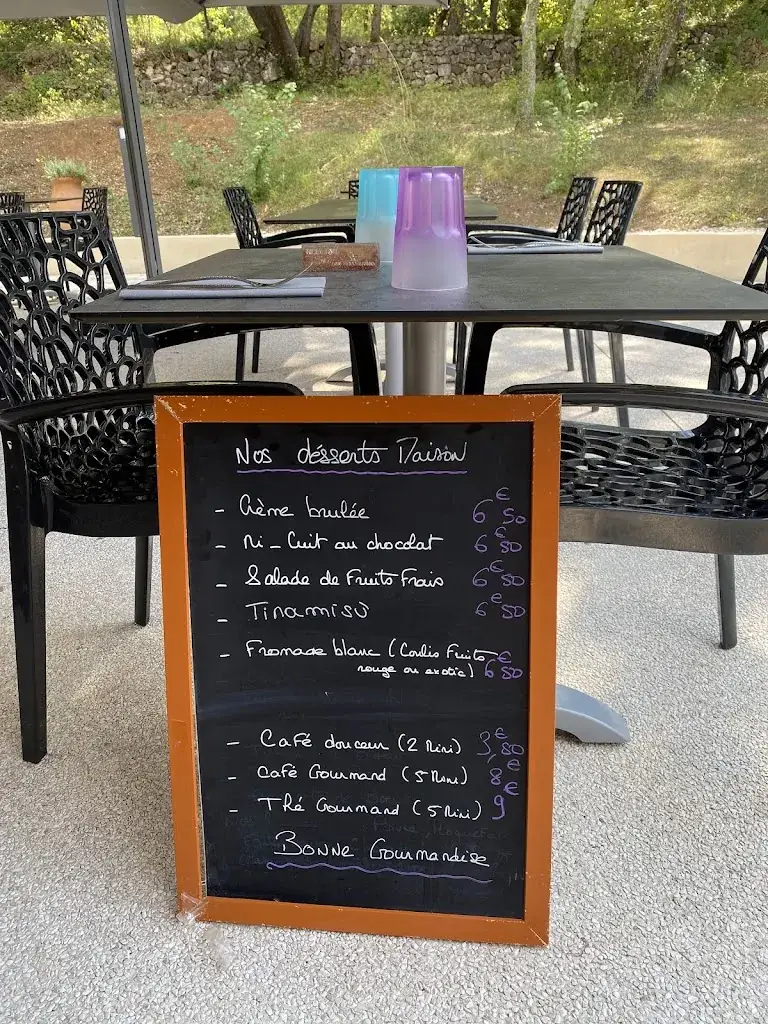 Nos désserts Maison
- Crème brulée 6€50
- Mi-Cuit au chocolat 6€80
- Salade de Fruits Frais 6€80
- Tiramisù 6€80
- Fromage blanc (Coulis Fruits
rouge ou exotic) 6€80
- Café douceur (2 Mini) 3€80
- Café Gourmand (5 Mini) 8€
- Thé Gourmand (5 Mini) 9€
Bonne Gourmandise